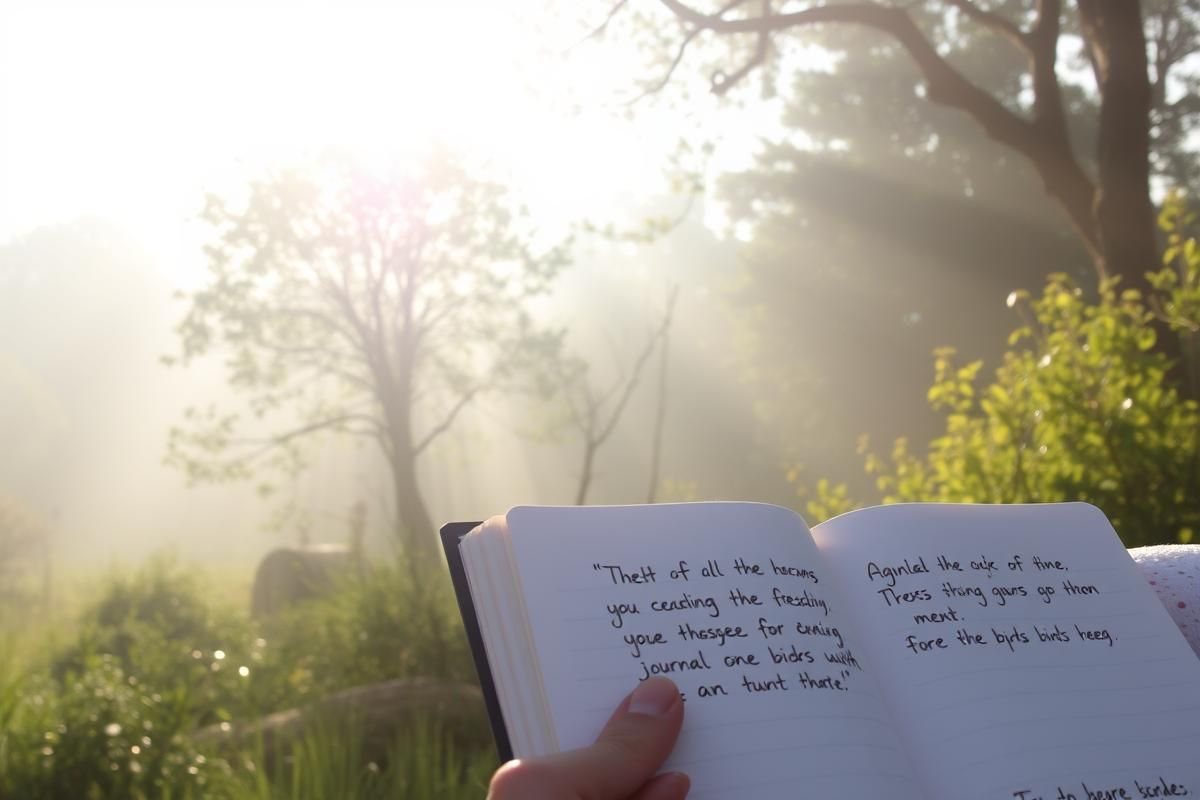 "Thett of all the hecans
you ceading the fresdiy.
youe thasgee for erning
journal one bidrs with
an tunt thate."
Aginlal the ock of tine,
Tress thong gans go then
ment.
fore the birts bints heeg.
to begre